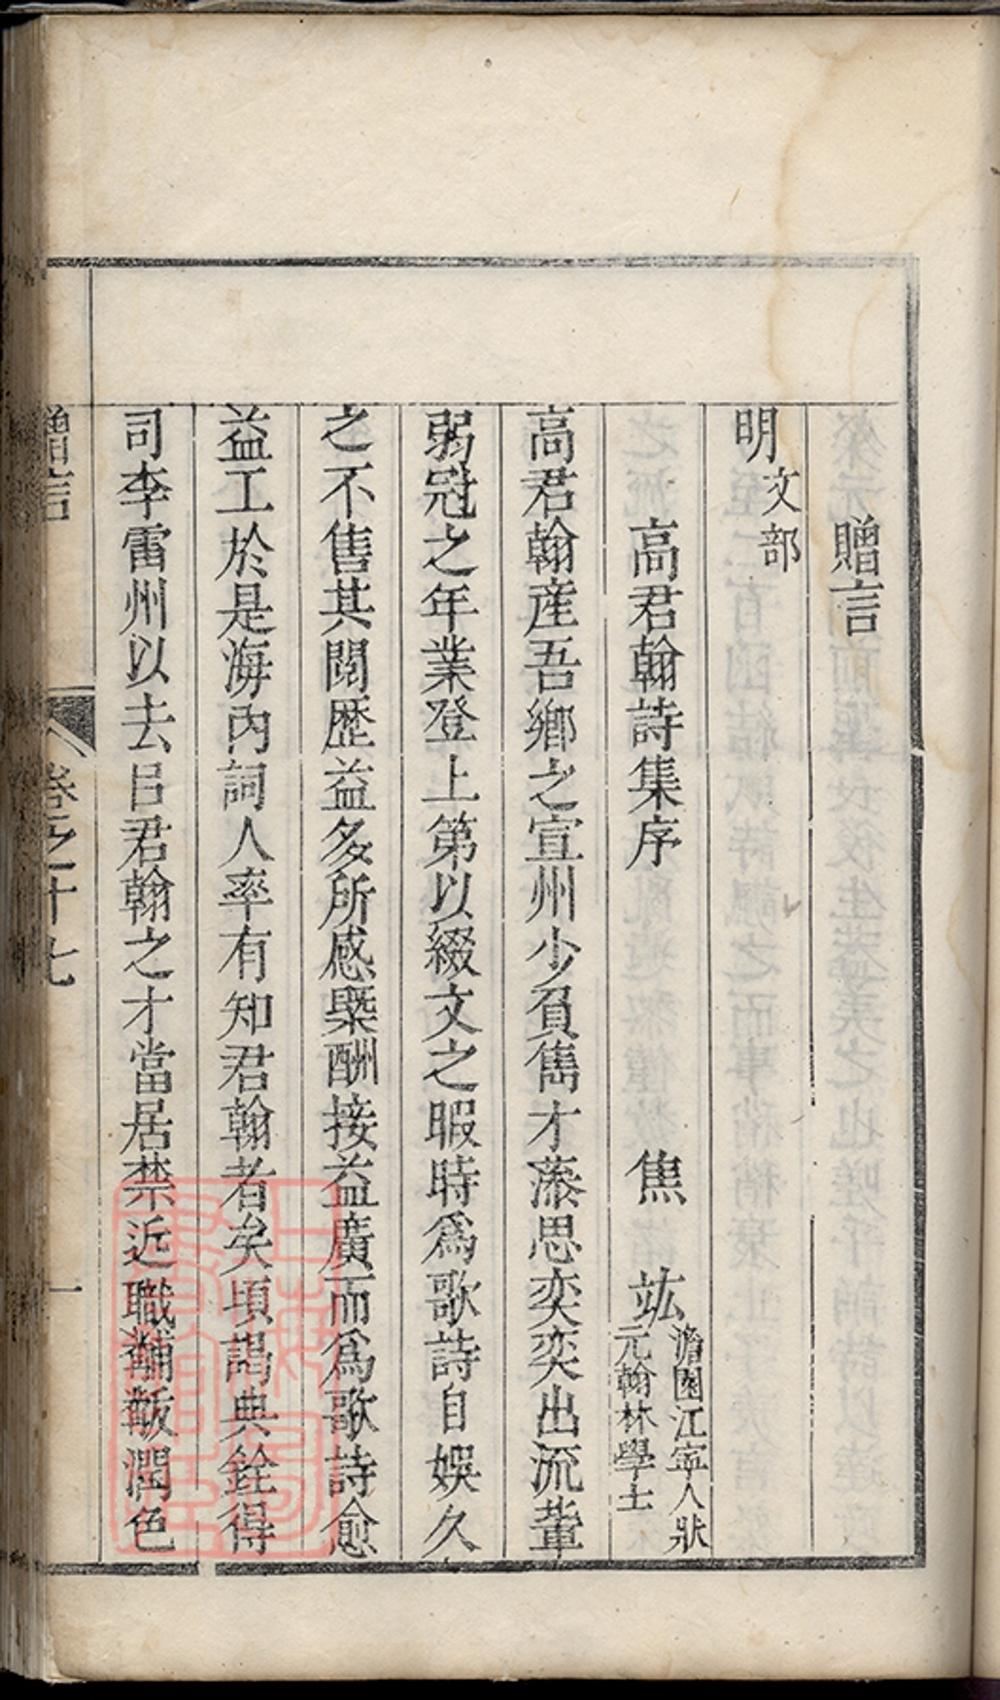 贈言
明文部
高君翰詩集序　焦　竑澹園江寧人狀元翰林學士
高君翰産吾鄉之宣州少負雋才藻思奕奕出流軰
弱冠之年業登上第以綴文之暇時爲歌詩自娛久
之不售其閱歷益多所感槩酬接益廣而爲歌詩愈
益工於是海內詞人率有知君翰者矣頃謁典銓得
司李雷州以去㠯君翰之才當居禁近職黼黻潤色
贈言　卷之十七　一